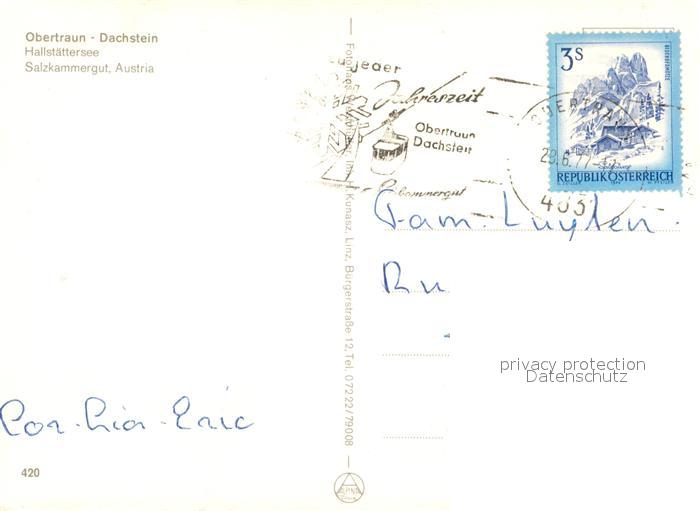 Obertraun - Dachstein
Hallstättersee
Salzkammergut, Austria
zu jeder
Jahreszeit
Obertraun
Dachstein
Salzkammergut
3S
BISCHOFSMÜTZE
REPUBLIK ÖSTERREICH
OBERTRAUN
29.6.77
Kunasz, Linz, Bürgerstraße 12, Tel. 07222/79008
Fam. Luyten.
Ru
privacy protection
Datenschutz
Cor-Lia-Eric
420